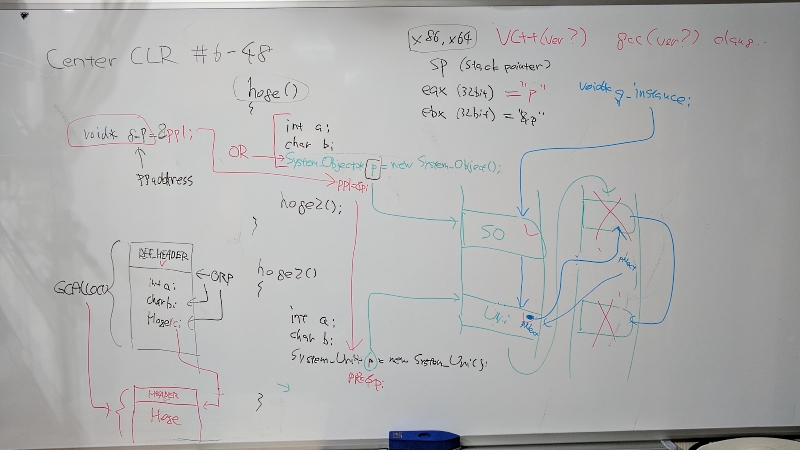 Center CLR #6-48
x86, x64
VC++(ver?) gcc(ver?) clang..
SP (stack pointer)
eax (32bit) = "p"
ebx (32bit) = "&p"
void* g_instance;
hoge()
{
int a;
char b;
System_Object* p = new System_Object();
OR
pp1=&p;
void* g_p = &pp1;
pp address
hoge2();
}
REF_HEADER
int a;
char b;
Hoge c;
ORP
GCAlloc()
HEADER
Hoge
hoge2()
{
int a;
char b;
System_Uni* p = new System_Uni();
pp2=&p;
}
SO
Uni